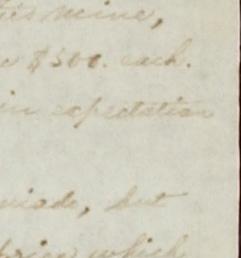 mine,
$500. each.
in expectation
made, but
which